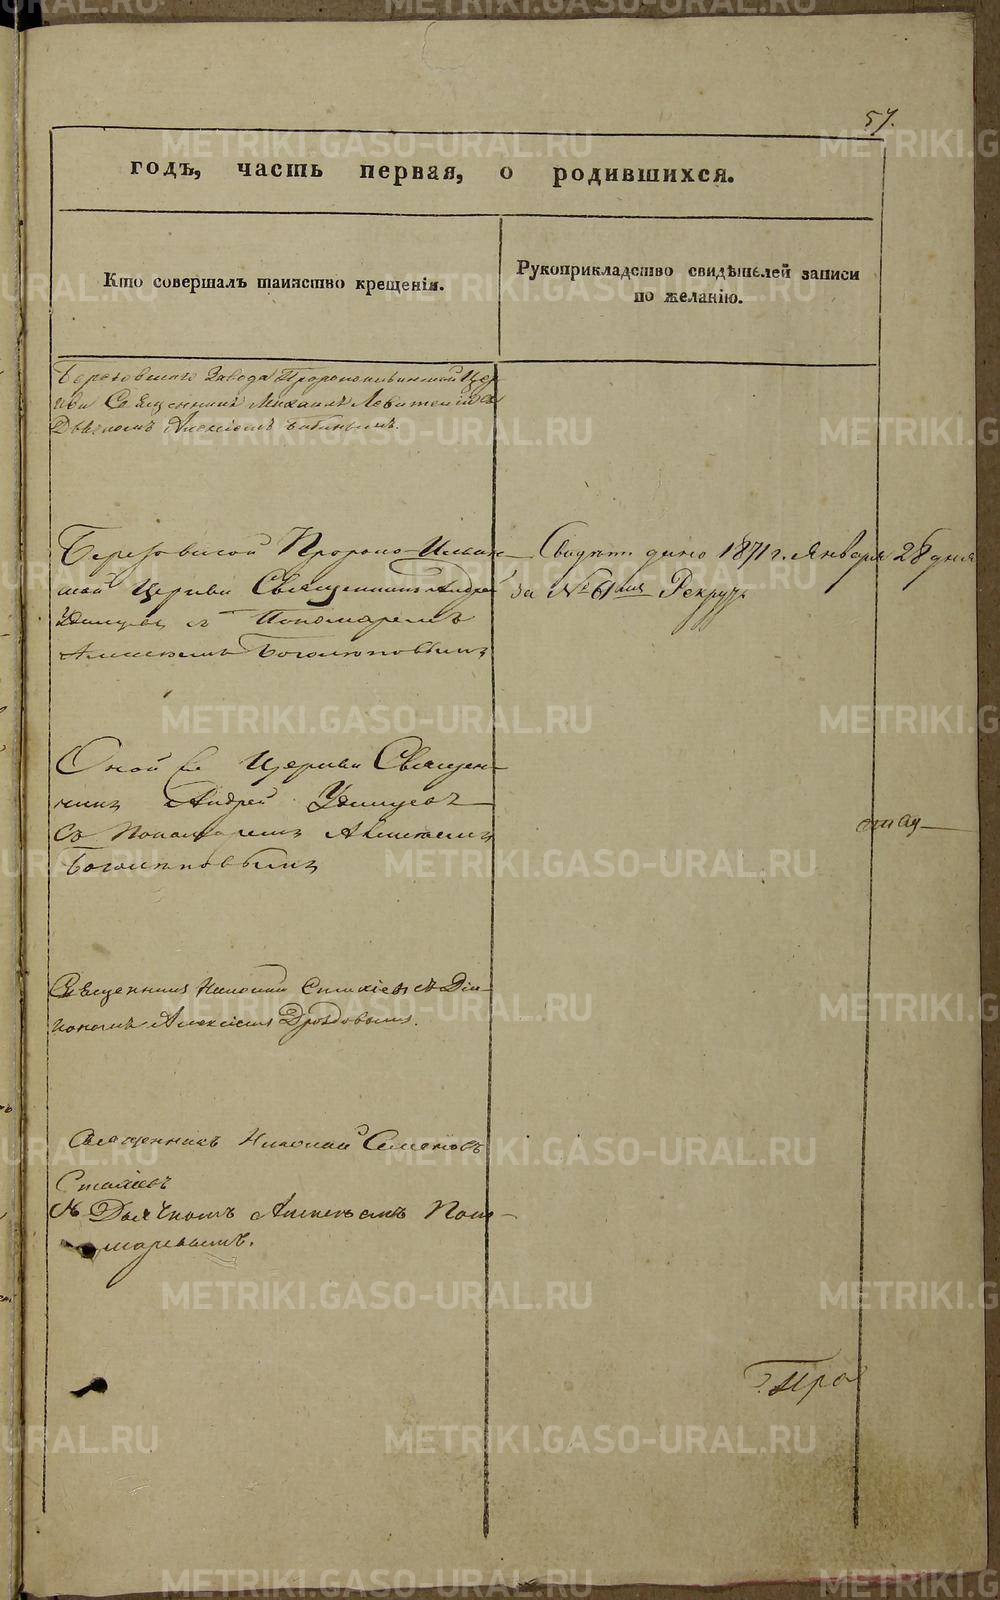 57.
годъ, часть первая, о родившихся.
Кто совершалъ таинство крещенія.
Рукоприкладство свидѣтелей записи
по желанію.
Березовскаго Завода Пророкоильинской Цер-
кви Священникъ Михаилъ Левитскій съ
Дьячкомъ Алексіемъ
Березовской Пророко-Ильин-
ской Церкви Священникъ Андрей
Удинцевъ съ Пономаремъ
Алексѣемъ Боголюповымъ
Свидѣт. дано 1871 г. Января 28 дня
за № 61 Рекруч.
Оной же Церкви Священ-
никъ Андрей Удинцевъ
Съ Пономаремъ Алексѣемъ
Боголюповымъ
Священникъ Николай съ Діа-
кономъ Алексіемъ Дроздовымъ.
Священникъ Николай Семеновъ
Съ Дьячкомъ Алексѣемъ Поно-
маревымъ.
METRIKI.GASO-URAL.RU